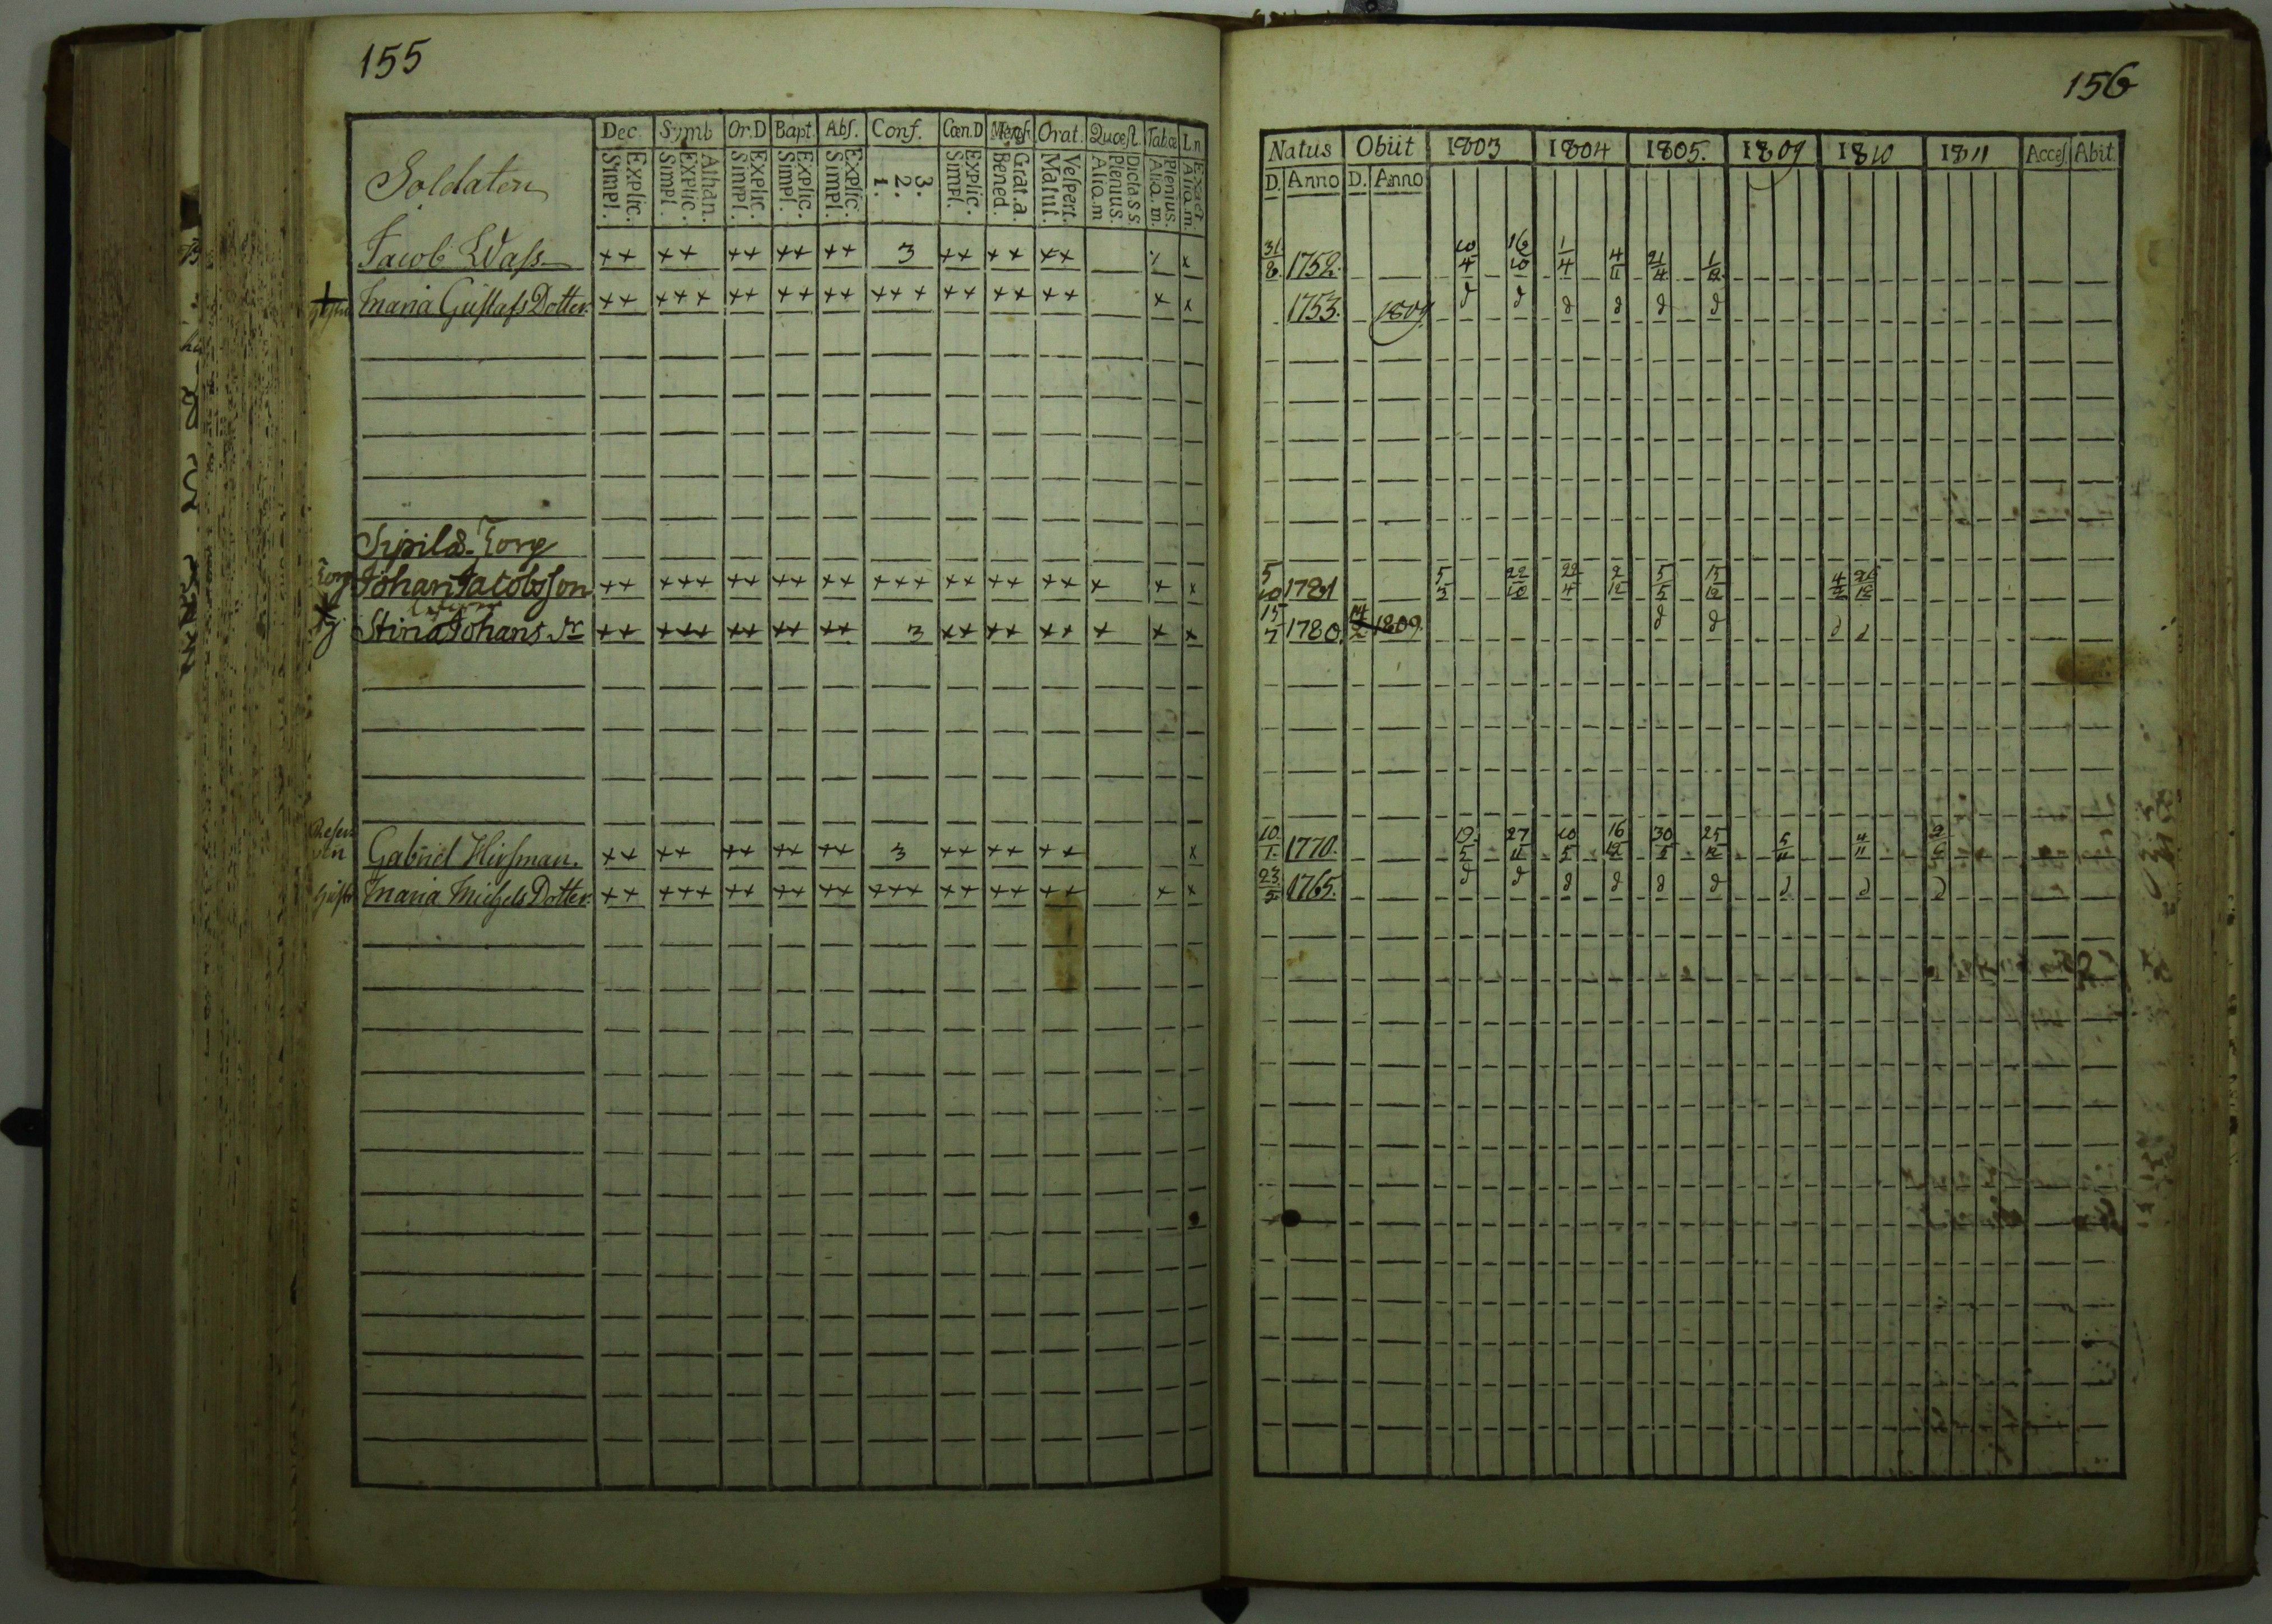 155
Dec. Symb. Or.D Bapt. Abſ. Conf. Cœn.D Menſ. Orat. Quæſt. Tabœ Ln
Explic. Simpl. Athan. Explic. Simpl. Explic. Simpl. Explic. Simpl. Explic. Simpl. 3. 2. 1. Explic. Simpl. Grat.a. Bened. Veſpert. Matut. Dicta.s.s. Plenius. Aliq.m Plenius. Aliq.m. Exact. Aliq.m.
Soldaten
Jacob Waſs ++ ++ ++ ++ ++ 3 ++ ++ ++ x
Maria Guſtafs Dotter. ++ +++ ++ ++ ++ +++ ++ ++ ++ + x
Sipilä Torp
Torp Johan Jacobsſon ++ +++ ++ ++ ++ +++ ++ ++ ++ x + x
Stina Johans dr ++ +++ ++ ++ ++ 3 ++ ++ ++ x + x
Gabriel Hirſman. ++ ++ ++ ++ ++ 3 ++ ++ ++ x
Huſtr Maria Michels Dotter. ++ +++ ++ ++ ++ +++ ++ ++ ++ + x
156
Natus Obiit 1803 1804 1805. 1809 1810 1811 Acceſ. Abit.
D. Anno D. Anno
31/8. 1752. 10/4 16/10 1/4 4/11 21/4 1/12
1753. 1809 d d d d d d
5/10 1781 5/5 22/10 22/4 2/12 5/5 15/12 4/2 26/12
15/7 1780. 1809. d d d d
10/1. 1770. 19/5 27/11 10/5 16/12 30/5 25/12 5/11 4/11
23/5 1765. d d d d d d d d d